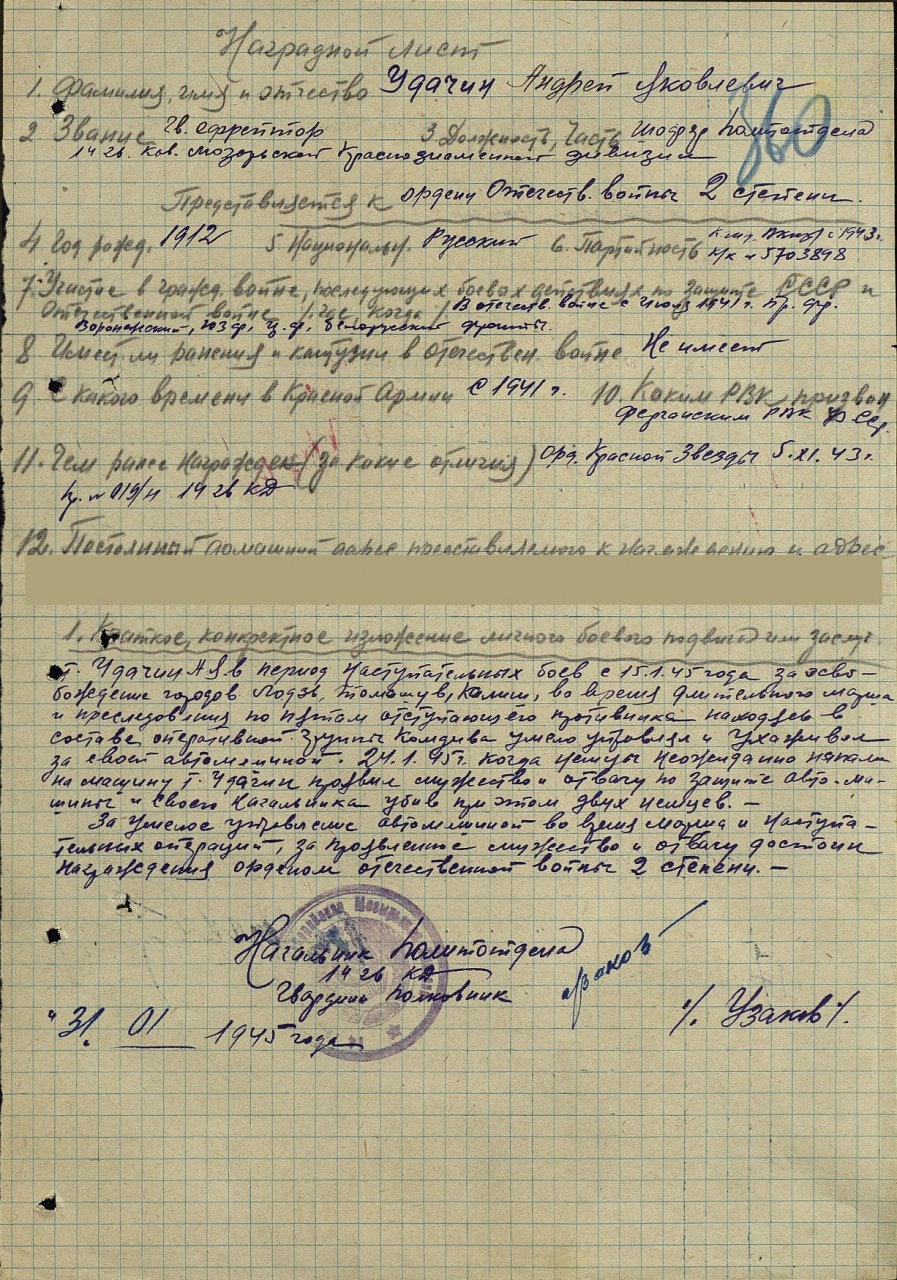 Наградной лист
1. Фамилия, имя и отчество Удачин Андрей Яковлевич
360
2 Звание Гв. ефрейтор 3. Должность, часть шофер Политотдела
14 гв. кав. Мозырьской Краснознаменной дивизии
Представляется к ордену Отечеств. войны 2 степени.
4 Год рожд. 1912 5 Национальн. Русский 6. Партийность К чл. ВКП(б) с 1943 г.
К/к № 5703898
7. Участие в гражд. войне, последующих боевых действиях по защите СССР и
Отечественной войне /где, когда/ В отечеств. войне с июня 1941 г. Бр. фр.
Воронежский, ЮЗ фр, Ц. ф, Белорусский фронты.
8 Имеет ли ранения и контузии в отечествен. войне Не имеет
9 С какого времени в Красной Армии с 1941 г. 10. Каким РВК призван
Ферганским РВК
11. Чем ранее награжден (за какие отличия) орд. Красной Звезды 5.XI.43 г.
Пр. № 019/н 14 гв КД
12. Постоянный домашний адрес представляемого к награждению и адрес
1. Краткое, конкретное изложение личного боевого подвига или заслуг.
т. Удачин А Я в период наступательных боев с 15.1.45 года за осво-
бождение городов Лодзь, Томашув, Калиш, во время длительного марша
и преследования по пятам отступающего противника находясь в
составе оперативной группы Комдива умело управлял и ухаживал
за своей автомашиной. 24.1.45 г. когда немцы неожиданно напали
на машину т. Удачин проявил мужество и отвагу по защите авто-ма-
шины и своего Начальника убив при этом двух немцев. —
За умелое управление автомашиной во время марша и наступа-
тельных операций, за проявленное мужество и отвагу достоин
награждения орденом отечественной войны 2 степени. —
Начальник Политотдела
14 гв КД
Гвардии полковник
/. Узаков /.
"31. 01 1945 года